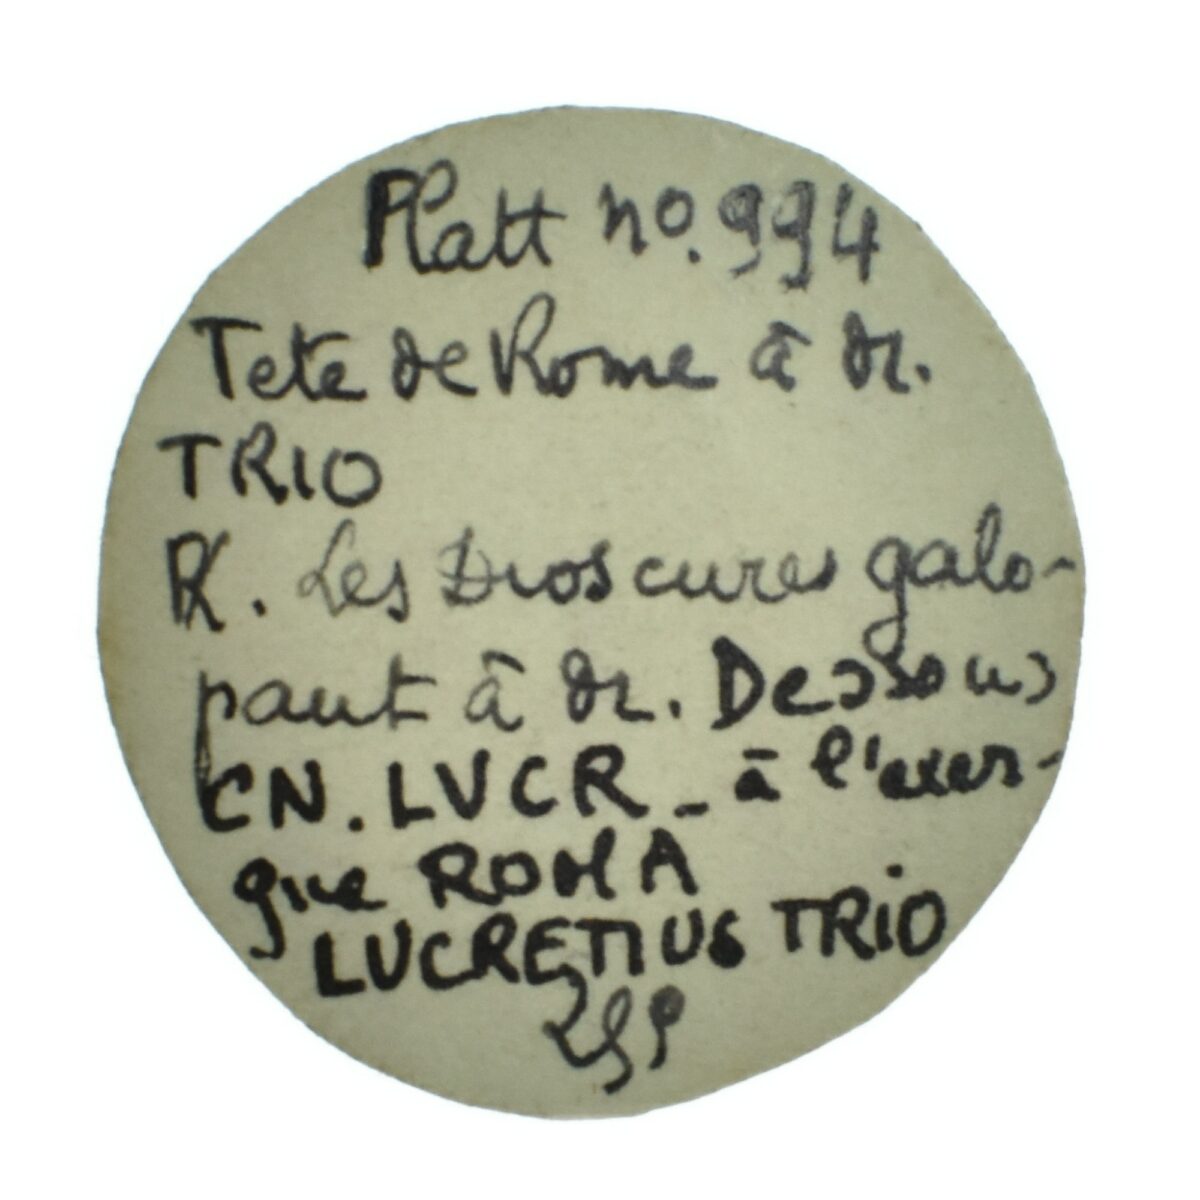 Platt no. 994
Tete de Rome à dr.
TRIO
R. Les Dioscures galo-
pant à dr. Dessous
CN. LVCR _ à l'exer-
gue ROMA
LUCRETIUS TRIO